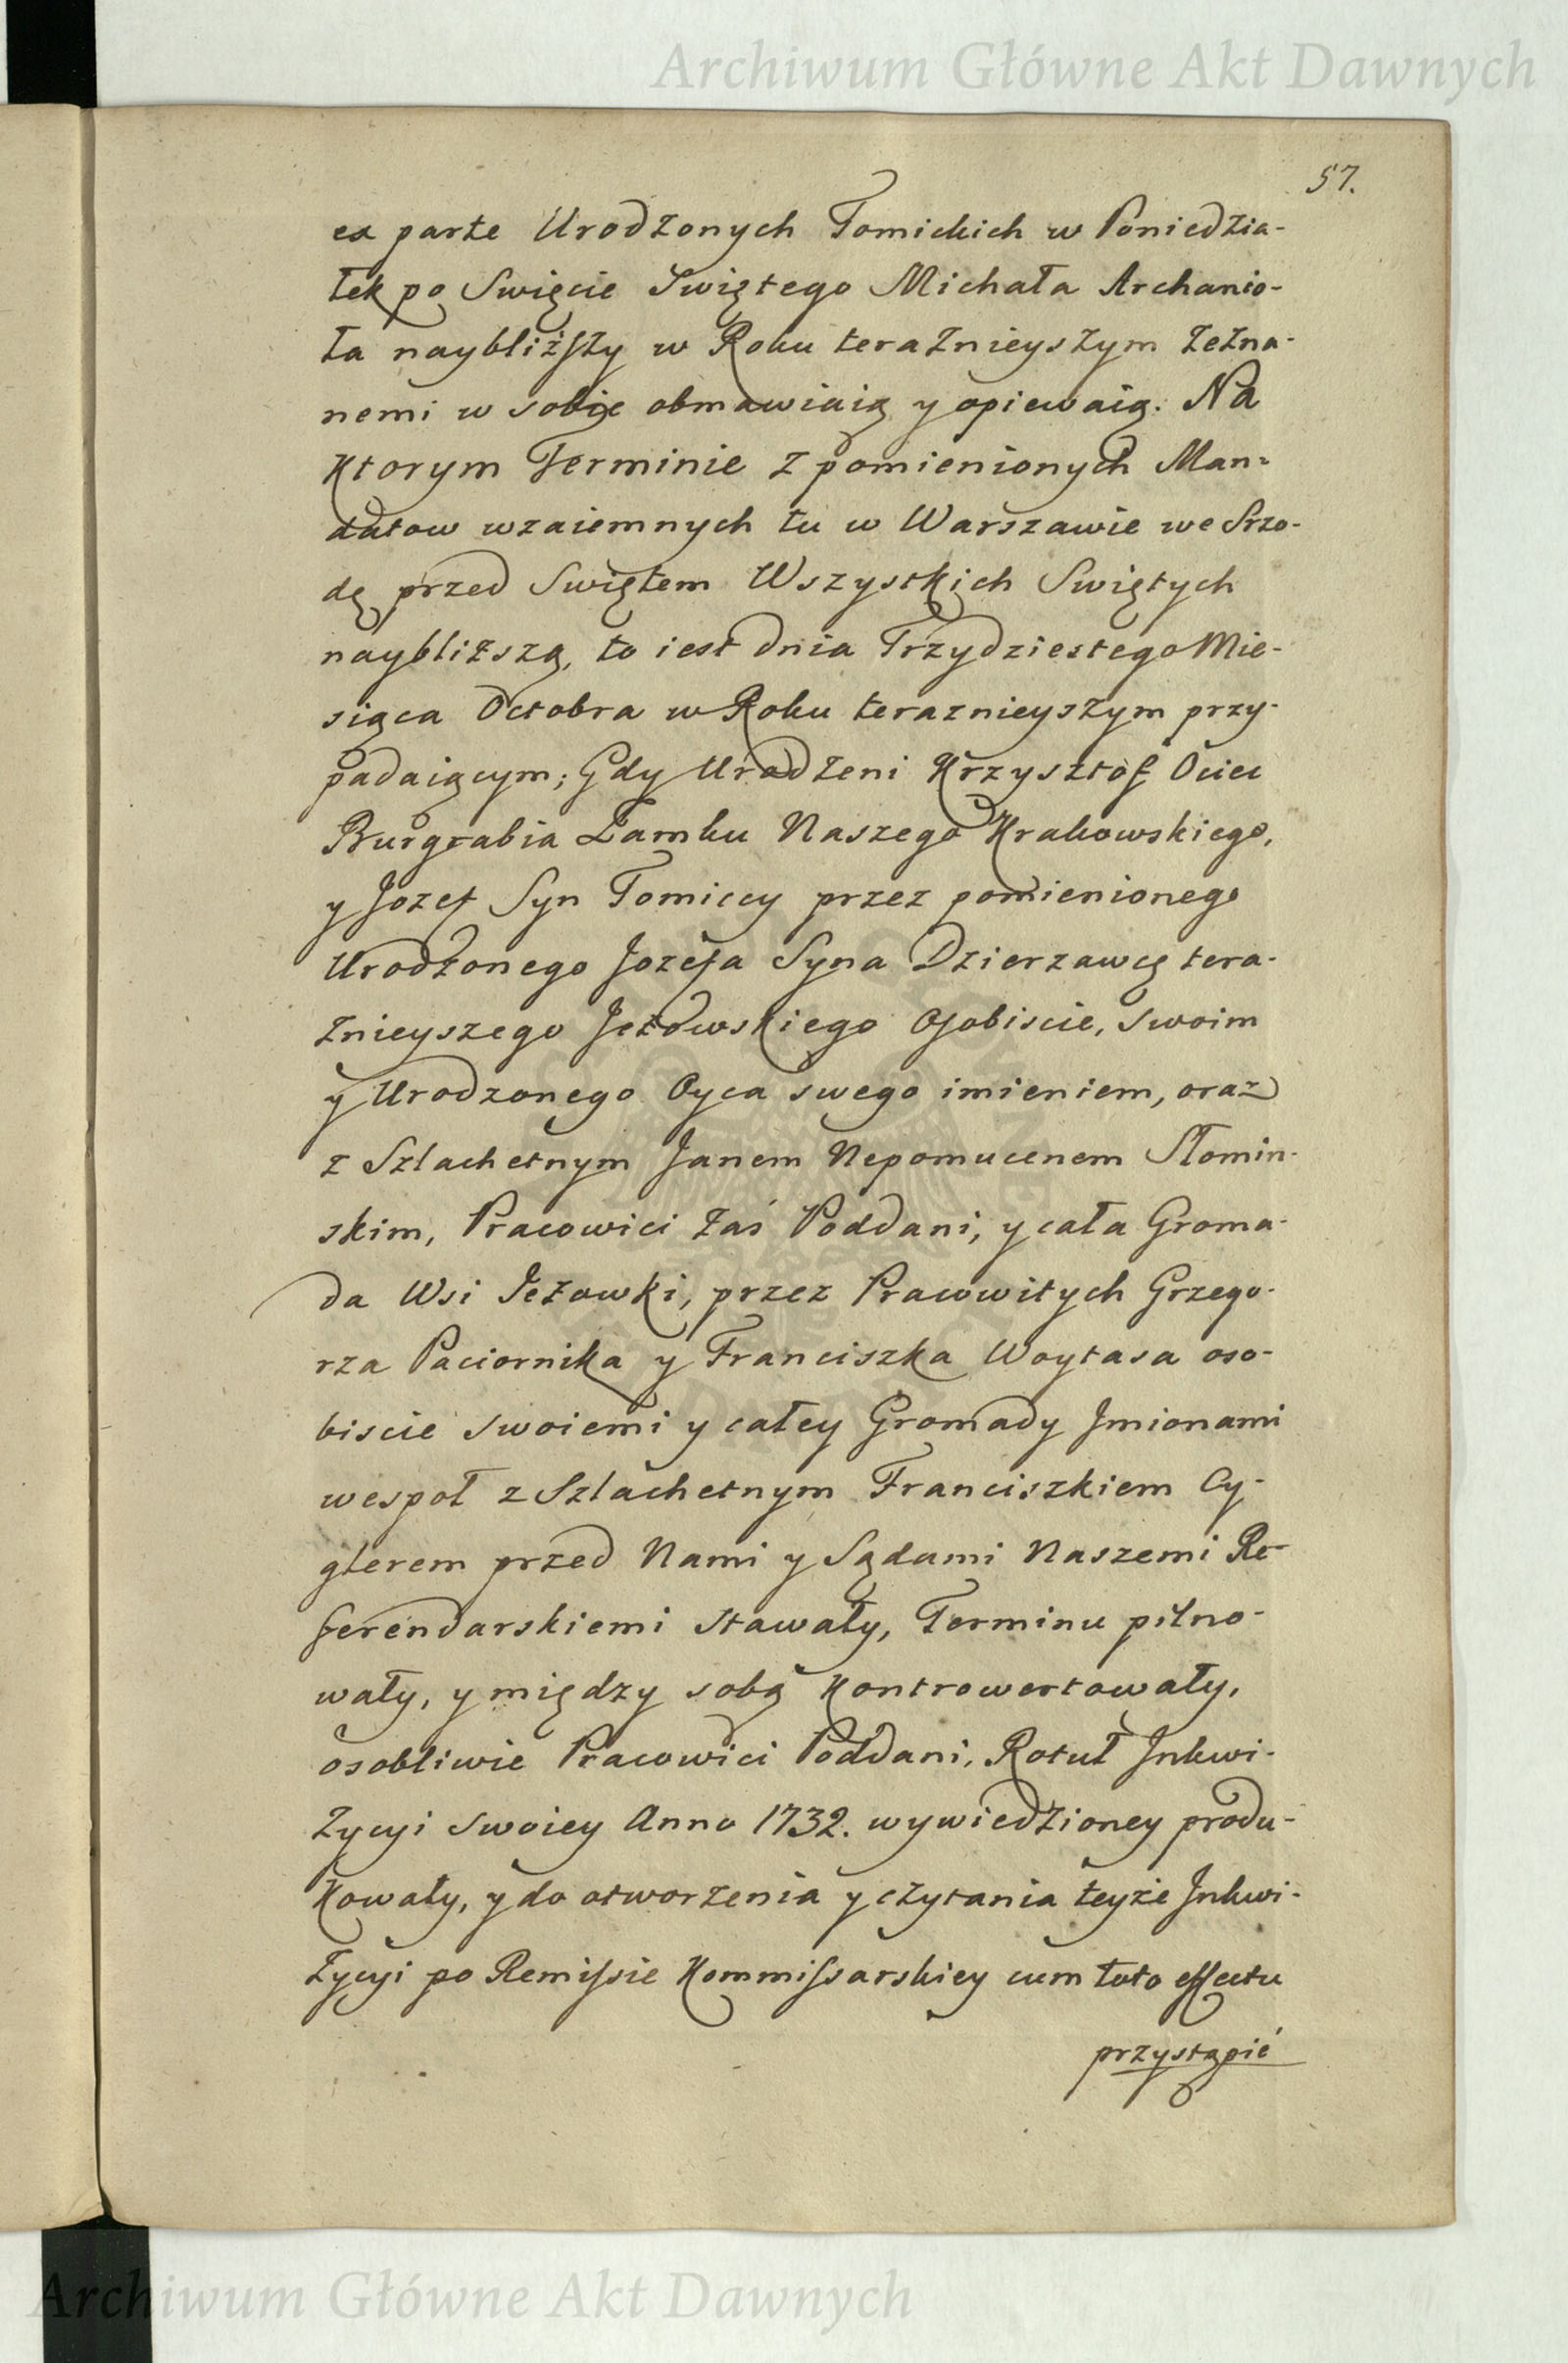 Archiwum Główne Akt Dawnych
57.
ex parte Urodzonych Tomickich w Poniedzia-
łek po Swięcie Swiętego Michała Archanio-
ła naybliższy w Roku teraznieyszym zezna-
nemi w sobie obmawiaią y opiewaią. Na
Ktorym Terminie z pomienionych Man-
datow wzaiemnych tu w Warszawie we Srzo-
dę przed Swiętem Wszystkich Swiętych
naybliższą, to iest dnia Trzydziestego Mie-
siąca Octobra w Roku teraznieyszym przy-
padaiącym; Gdy Urodzeni Krzysztof Ociec
Burgrabia Zamku Naszego Krakowskiego,
y Jozef Syn Tomiccy przez pomienionego
Urodzonego Jozefa Syna Dzierzawcę tera-
znieyszego Jeżowskiego Osobiscie, swoim
y Urodzonego Oyca swego imieniem, oraz
z Szlachetnym Janem Nepomucenem Słomin-
skim, Pracowici zaś Poddani, y cała Groma-
da Wsi Jeżowki, przez Pracowitych Grzego-
rza Paciornika y Franciszka Woytasa oso-
biscie swoiemi y całey Gromady Jmionami
wespoł z Szlachetnym Franciszkiem Cy-
glerem przed Nami y Sądami Naszemi Re-
ferendarskiemi stawały, Terminu pilno-
wały, y między sobą kontrowertowały,
osobliwie Pracowici Poddani, Rotuł Jnkwi-
zycyi swoiey Anno 1732. wywiedzioney produ-
kowały, y do otworzenia y czytania teyże Jnkwi-
zycyi po Remissie Kommissarskiey cum toto effectu
przystąpić
Archiwum Główne Akt Dawnych